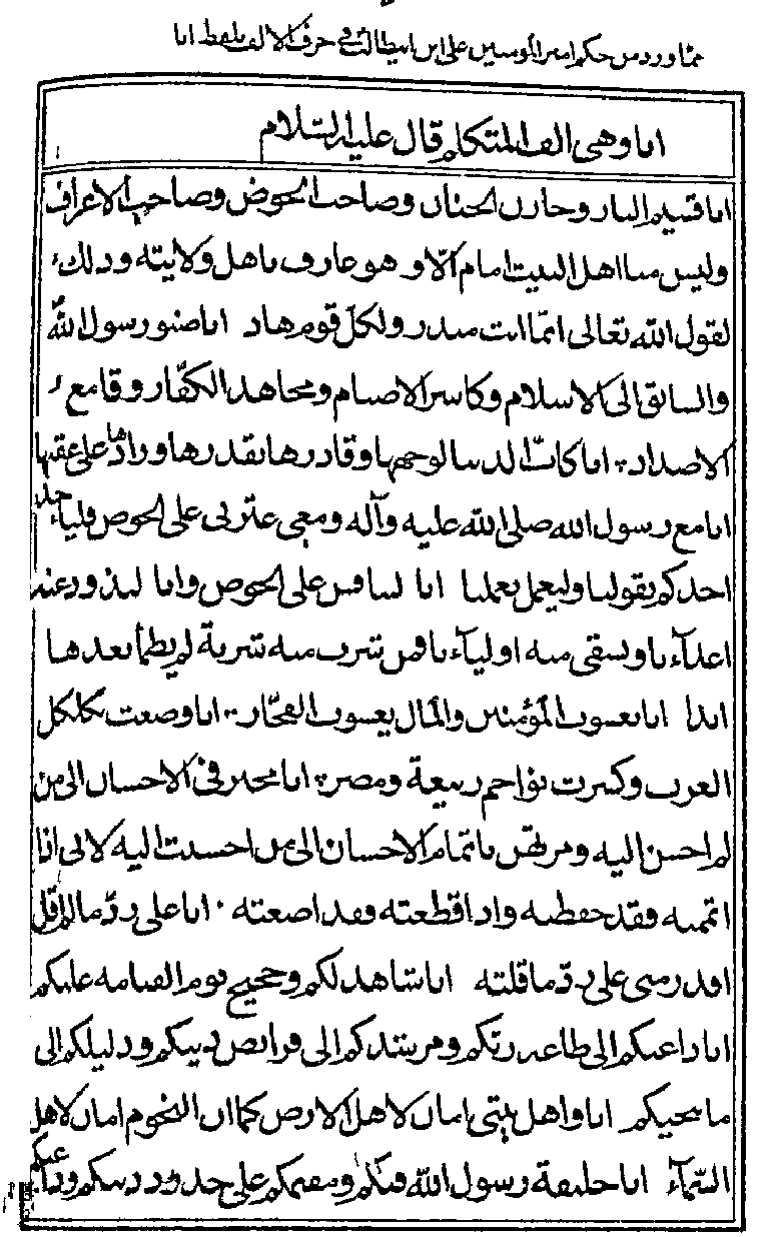 مما ورد من حكم امير المؤمنين على ابن ابيطالب فى حرف الالف بلفظ انا
انا وهى الف المتكلم قال عليه السلام
انا قسيم النار وخازن الجنان وصاحب الحوض وصاحب الاعراف
وليس منا اهل البيت امام الا وهو عارف باهل ولايته وذلك
لقول الله تعالى انما انت منذر ولكل قوم هاد انا صنو رسول الله
والسابق الى الاسلام وكاسر الاصنام ومجاهد الكفار وقامع
الاضداد انا كاب الدنيا لوجهها وقادرها بقدرها ورادها على عقبها
انا مع رسول الله صلى الله عليه وآله ومعى عترتى على الحوض فلياخذ
احدكم بقولنا وليعمل بعملنا انا لننافس على الحوض وانا لنذود عنه
اعداءنا ونسقى منه اولياءنا فمن شرب منه شربة لم يظمأ بعدها
ابدا انا يعسوب المؤمنين والمال يعسوب الفجار انا وضعت بكلكل
العرب وكسرت نواجم ربيعة ومضر انا مخير فى الاحسان الى من
لم احسن اليه ومرتهن باتمام الاحسان الى من احسنت اليه لانى اذا
اتممته فقد حفظته واذا قطعته فقد اضعته انا على رد ما لم اقل
اقدر منى على رد ما قلته انا شاهد لكم وحجيج يوم القيامه عليكم
انا داعيكم الى طاعة ربكم ومرشدكم الى فرايض دينكم ودليلكم الى
ما ينجيكم انا واهل بيتى امان لاهل الارض كما ان النجوم امان لاهل
السماء انا خليفة رسول الله فيكم ومقيمكم على حدود دينكم وداعيكم